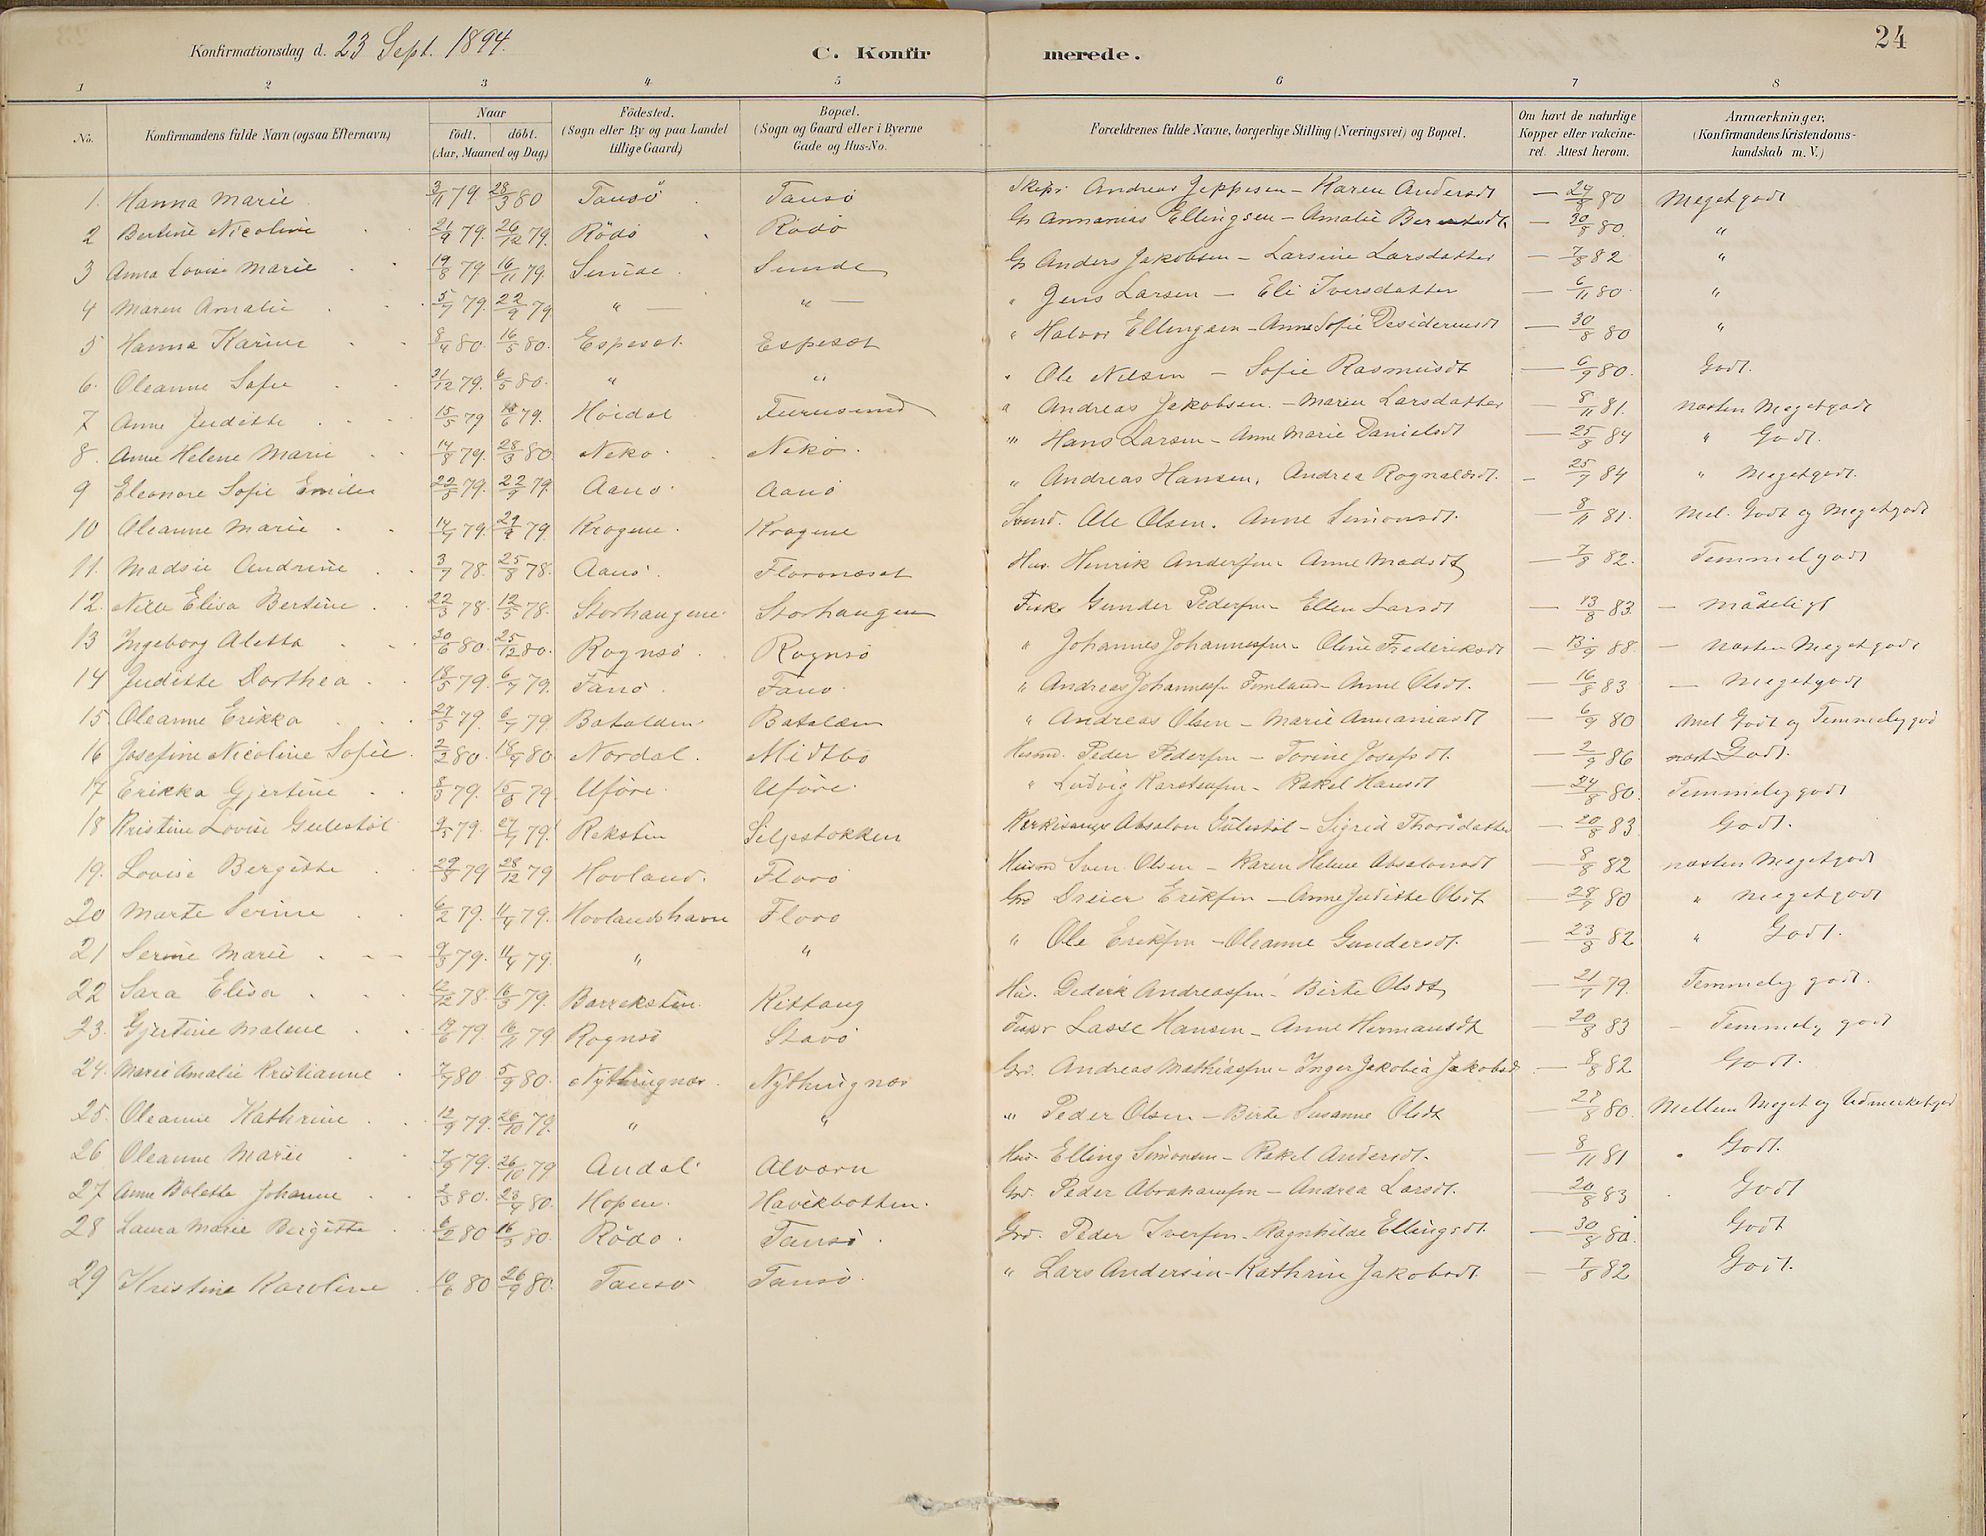 24
Konfirmationsdag d. 23 Sept. 1894.
C. Konfirmerede.
1 2 3 4 5 6 7 8
No. Konfirmandens fulde Navn (ogsaa Efternavn) Naar födt. döbt. (Aar, Maaned og Dag) Födested. (Sogn eller By og paa Landet tillige Gaard) Bopæl. (Sogn og Gaard eller i Byerne Gade og Hus-No. Forældrenes fulde Navne, borgerlige Stilling (Næringsvei) og Bopæl. Om havt de naturlige Kopper eller vakcineret. Attest herom. Anmærkninger, (Konfirmandens Kristendomskundskab m. V.)
1. Hanna Marie 3/11 79. 28/3 80 Tansö Tansö Skips Andreas Jeppesen - Karen Andersdt — 24/8 80 Megetgodt
2 Bertine Nicoline 21/9 79. 26/12 79. Rödö Rödö Gr Annanias Ellingsen - Amalie — 30/8 80. "
3 Anna Lovise Marie 19/8 79 16/11 79. Sunde Sunde Gr Anders Jakobsen - Larsine Larsdatter — 7/8 82 "
4 Maren Amalie 5/7 79. 22/9 79 " — " — " Jens Larsen — Eli Iversdatter — 6/11 80. "
5 Hanna Karine 8/4 80 16/5 80. Espeset. Espeset " Halvor Ellingsen - Anne Sofie Desideriusdt — 30/8 80 "
6. Oleanne Sofie 31/12 79. 6/5 80. " " " Ole Nilsen — Sofie Rasmusdt — 6/9 80. Godt.
7 Anne Juditte 15/5 79 15/6 79. Höidal Furusund " Andreas Jakobsen. - Maren Larsdatter — 8/11 81. næsten Megetgodt
8. Anne Helene Marie 14/8 79. 28/3 80. Nekö. Nekö. " Hans Larsen - Anne Marie Danielsdt — 25/8 84 " Godt.
9 Eleonore Sofie Emilie 22/5 79. 22/9 79. Aanö. Aanö " Andreas Hansen, Andrea Rognaldsdt. — 25/7 84 " Megetgodt.
10 Oleanne Marie 14/7 79. 79. Krogene. Krogene Ole Olsen. Anne Simonsdt. — 8/11 81. Mel. Godt og Megetgodt
11. Madsie Andrine 3/7 78. 25/8 78. Aanö. Floronæset Hus. Henrik Andersen Anne Madsdt — 7/8 82. Temmel godt
12. Nille Elisa Bertine 22/3 78. 12/5 78. Storhaugene. Storhaugen Fisk. Gunder Pedersen - Ellen Larsdt — 13/8 83. — mådeligt
13 Ingeborg Aletta 20/6 80. 25/12 80. Rognsö. Rognsö " Johannes Johannessen - Oline Frederiksdt — 13/9 88 — næsten Megetgodt
14 Juditte Dorthea 18/5 79. 6/7 79. Fanö. Fanö. " Andreas Johannessn Femland - Anne Olsdt. — 16/8 83 — Megetgodt
15. Oleanne Erikka 27/5 79. 6/7 79 Batalden Batalden " Andreas Olsen - Marie Annaniasdt — 6/9 80 Mel Godt og Temmelig god
16 Josefine Nicoline Sofie. 2/2 80. 18/4 80 Nordal. Midtbö Husmd. Peder Pedersen — Torine Josefsdt. — 2/9 86 næst. Godt.
17 Erikka Gjertine 8/3 79. 15/6 79. Uföre. Uföre. " Ludvig Karstensen - Rakel Hansdt — 24/8 80. Temmelig godt
18 Kristine Lovise Gulestöl 9/5 79. 27/7 79. Reksten Seljestokken Kirkesanger Absalon Gulestöl - Sigrid Thorsdatter — 20/8 83. Godt.
19. Lovise Bergitte 29/8 79 28/12 79 Hovland. Florö Husm Sven Olsen — Karen Helene Absalonsdt — 8/8 82 næsten Megetgodt
20 Marte Serine 6/2 79. 11/4 79. Hovlandshavn Florö Grd Dreier Eriksen — Anne Juditte Olsdt — 28/9 80 " Megetgodt
21 Serine Marie 9/3 79. 11/4 79. " " " Ole Eriksen - Oleanne Gundersdt. — 23/8 82 " Godt.
22 Sara Elisa 12/12 78. 16/3 79. Barrekstén. Kittang Hus. Dedrik Andreassen - Birte Olsdt — 21/7 79. Temmelig godt.
23. Gjertine Malene 19/6 79 16/11 79 Rognsö Stavö Fisker Lasse Hansen - Anne Hermansdt — 20/8 83 — Temmelig godt
24. Marie Amalie Kristianne 7/7 80 5/9 80. Nythugnær. Nythugnær Grd. Andreas Mathiassen - Inger Jakobia Jakobsd — 8/8 82 Godt.
25. Oleanne Kathrine 12/9 79. 26/10 79. " " " Peder Olsen - Birte Susanne Olsdt — 80. Mellem Meget og Udmerketgod
26 Oleanne Marie 7/9 79. 26/10 79. Andal Alvorn Hus. Elling Simonsen - Rakel Andersdt. — 8/11 81 Godt.
27 Anne Bolette Johanne 2/3 80. 23/4 80. Hopen. Havikbotten. Grd. Peder Abrahamsen - Andrea Larsdt. — 20/8 83 Godt
28 Laura Marie Bergitte 6/2 80 16/5 80. Rödö. Tansö. Grd. Peder Iversen - Ragnhilde Ellingsdt. — 30/8 80. Godt
29 Kristine Karoline 10/6 80 26/9 80. Tansö Tansö. " Lars Andersen - Kathrine Jakobsdt. — 7/8 82 Godt.